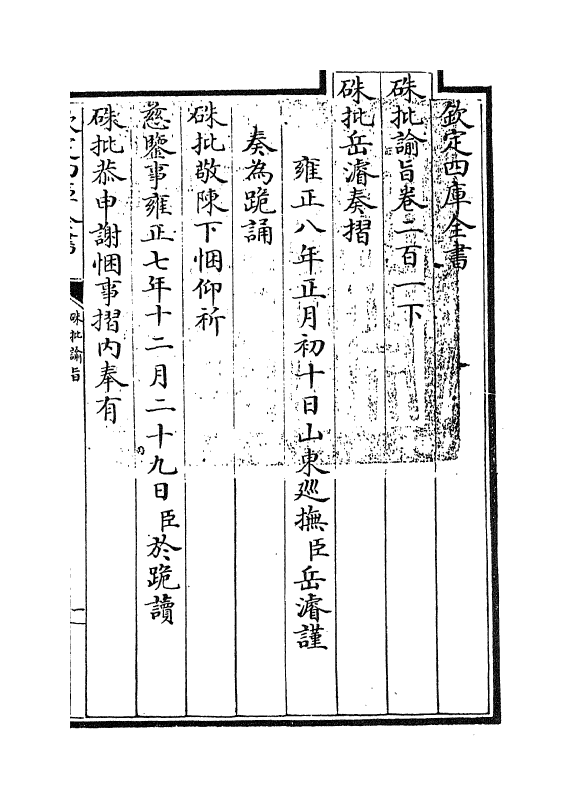 欽定四庫全書
硃批諭旨卷二百一下
硃批岳濬奏摺
雍正八年正月初十日山東廵撫臣岳濬謹
奏為跪誦
硃批敬陳下悃仰祈
慈鑒事雍正七年十二月二十九日臣於跪讀
硃批恭申謝悃事摺內奉有
欽定四庫全書
硃批諭旨
一